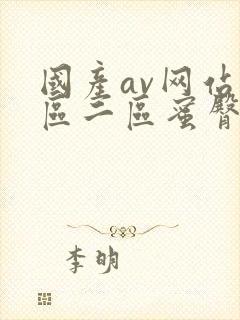 國產av网佔
區二區蜜臀
李明